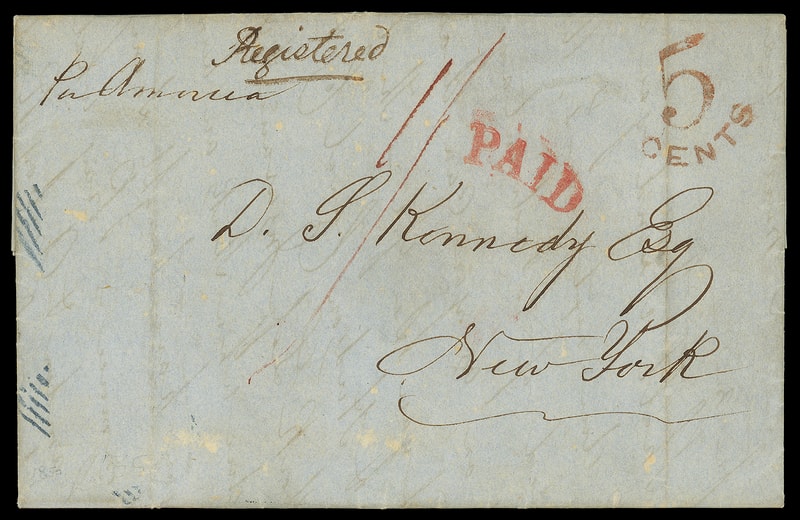 Registered
Per America
5
CENTS
PAID
D. S. Kennedy Esq
New York